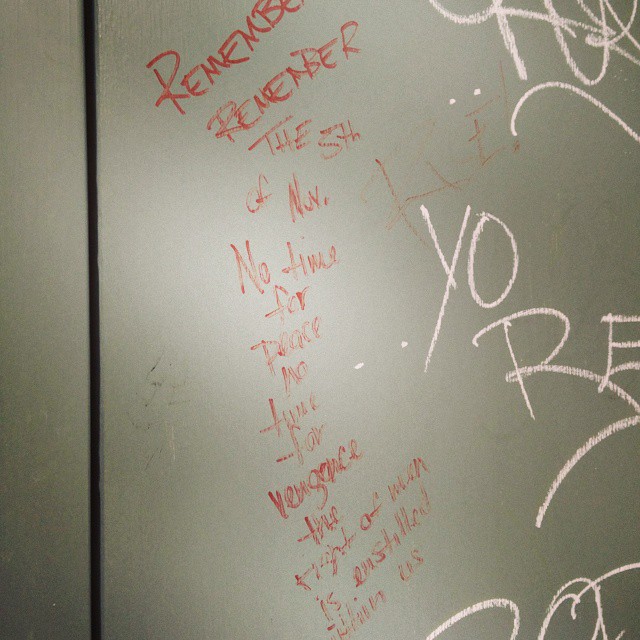 REMEMBER
REMEMBER
THE 5th
of Nov.
No time
for
peace
no
time
for
vengence
the
right of men
is enstilled
within us
YO
RE